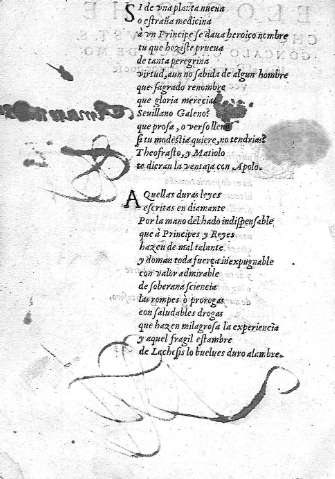 SI de vna planta nueua
o estraña medicina
à vn Principe se daua heroico nombre
tu que hoziste prueua
de tanta peregrina
virtud, aun no sabida de algun hombre
que sagrado renombre
que gloria merecia
Seuillano Galeno?
que prosa, o verso lleno
si tu modestia quiere, no tendria?
Theofrasto, y Matiolo
te dieran la ventaja con Apolo.
AQuellas duras leyes
escritas en diamante
Por la mano del hado indispensable
que à Principes y Reyes
hazen de mal talante
y doman toda fuerça inexpugnable
con valor admirable
de soberana sciencia
las rompes ò prorogas
con saludables drogas
que hazen milagrosa la experiencia
y aquel fragil estambre
de Lachesis lo buelues duro alambre.